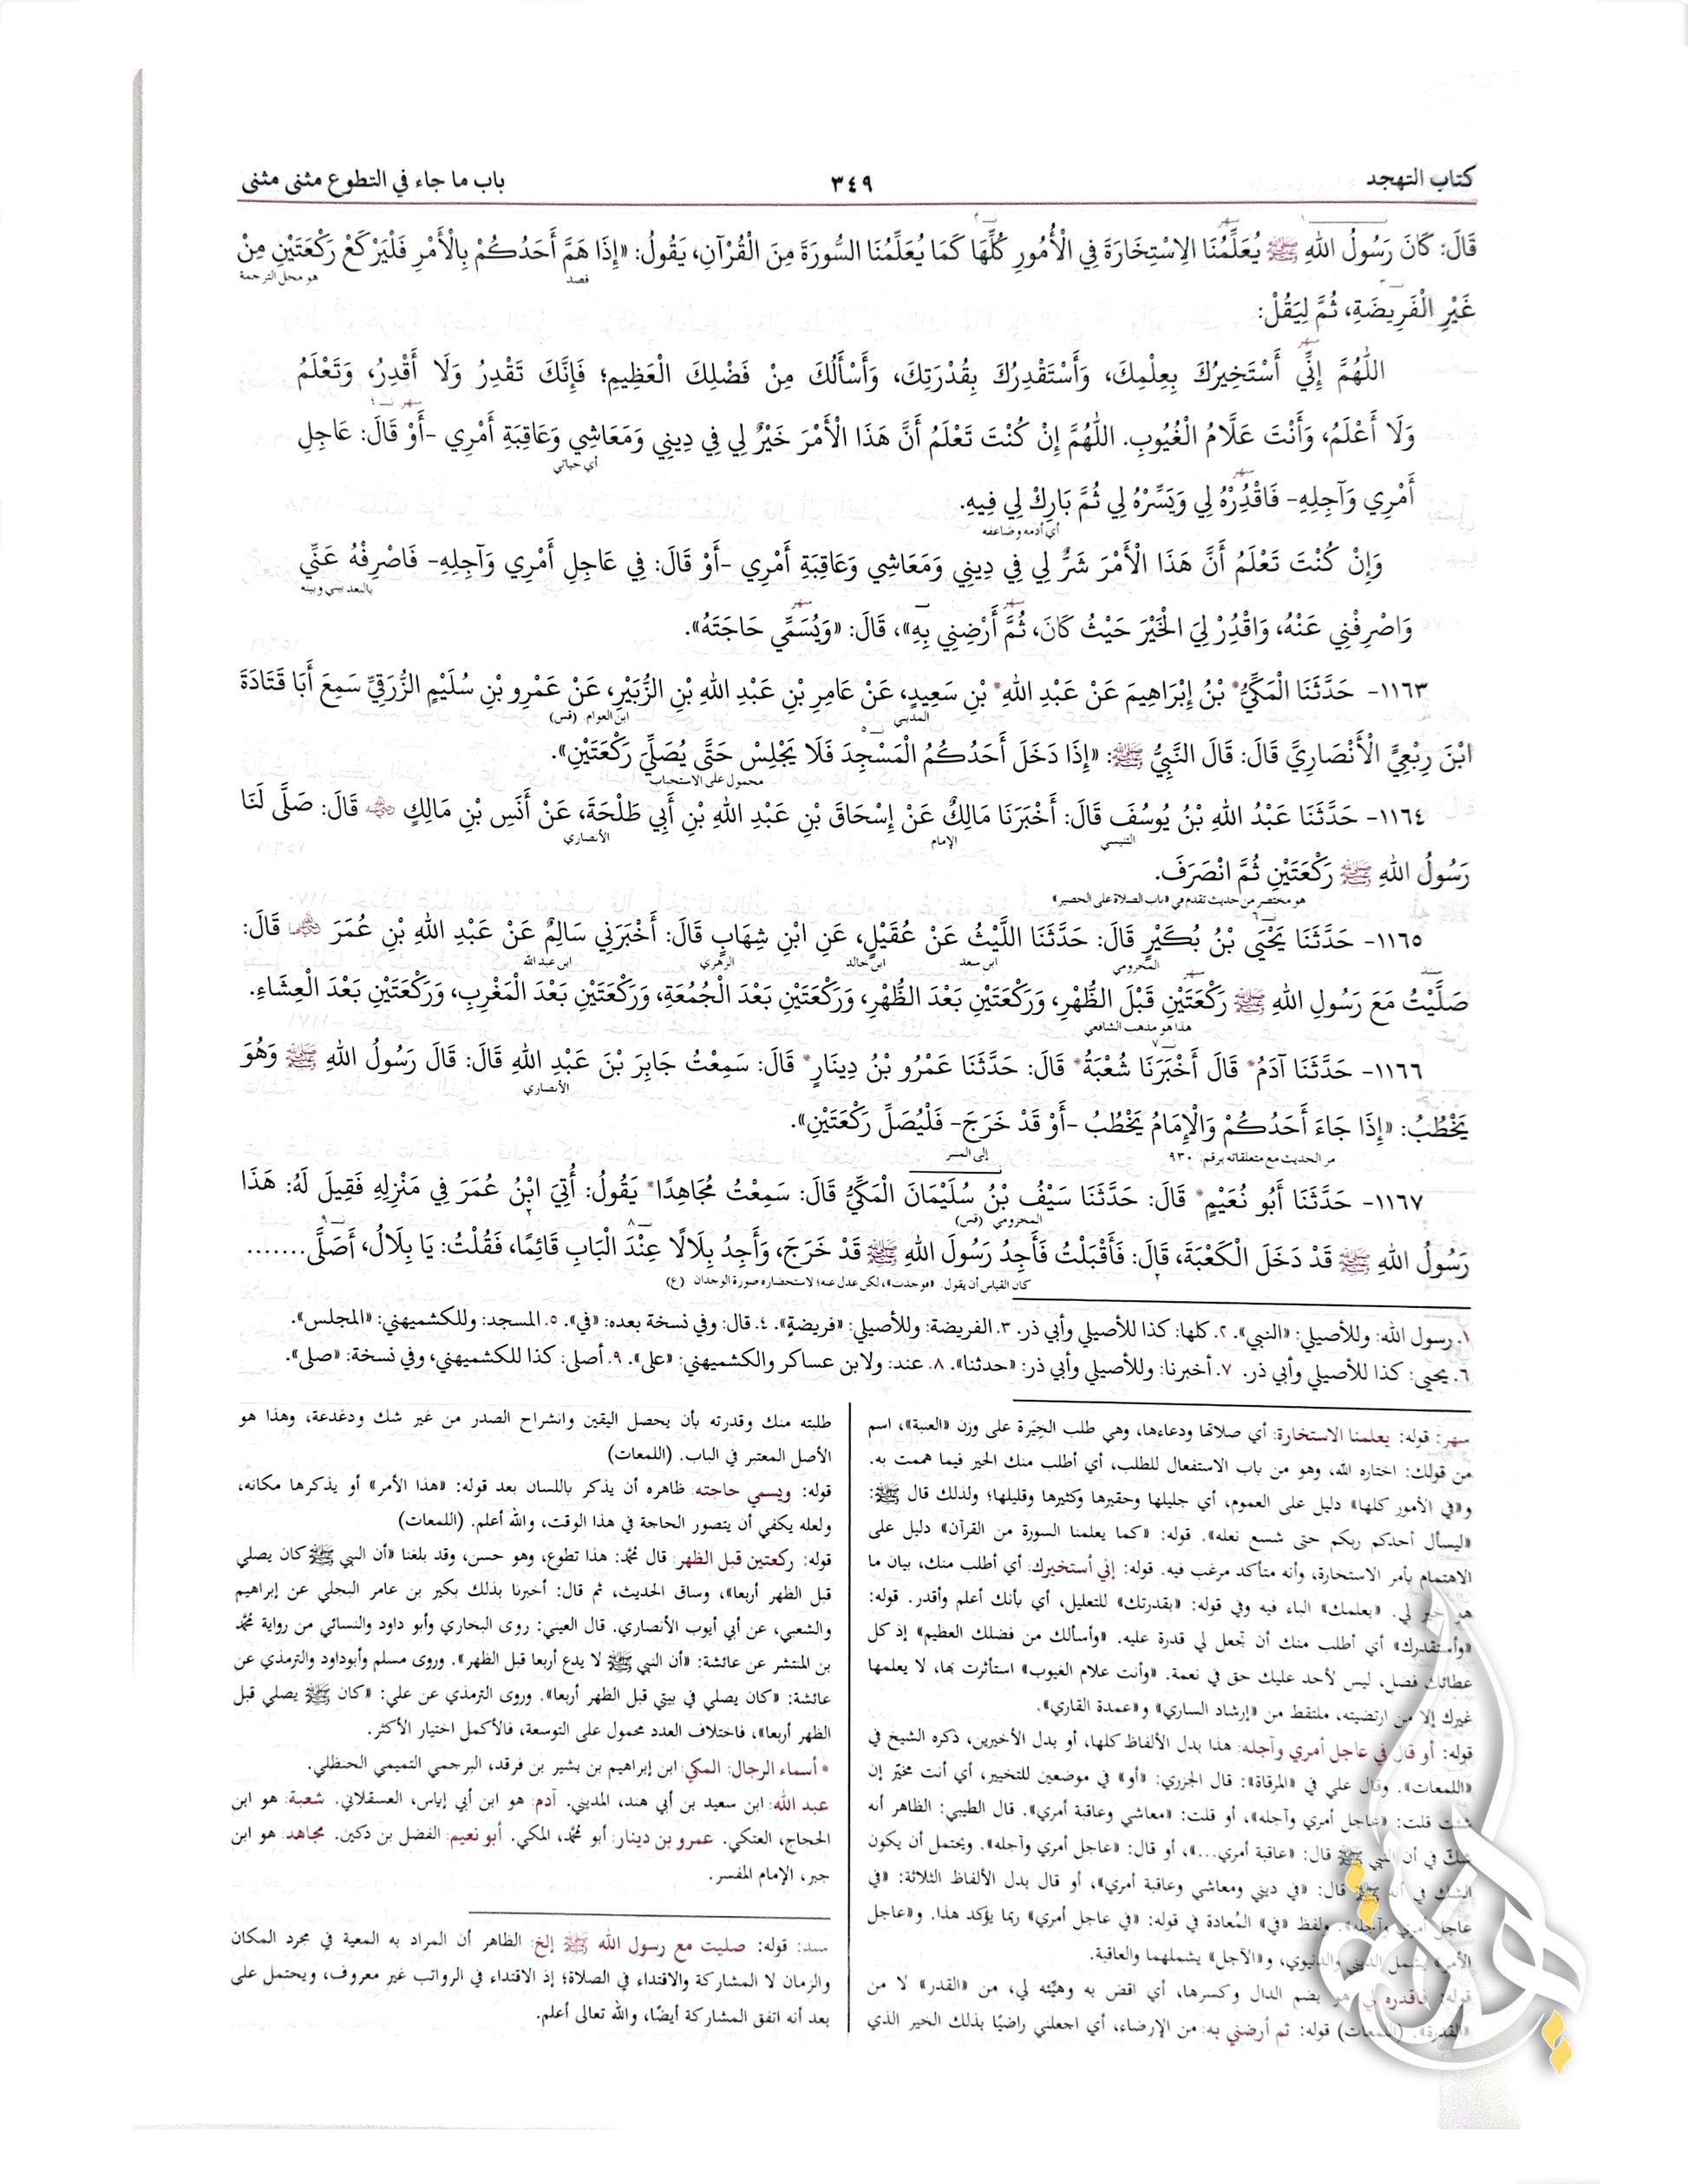 كتاب التهجد
٣٤٩
باب ما جاء في التطوع مثنى مثنى
قَالَ: كَانَ رَسُولُ اللهِ ﷺ يُعَلِّمُنَا الِاسْتِخَارَةَ فِي الْأُمُورِ كُلِّهَا كَمَا يُعَلِّمُنَا السُّورَةَ مِنَ الْقُرْآنِ، يَقُولُ: «إِذَا هَمَّ أَحَدُكُمْ بِالْأَمْرِ فَلْيَرْكَعْ رَكْعَتَيْنِ مِنْ
قصد
هو محل الترجمة
غَيْرِ الْفَرِيضَةِ، ثُمَّ لِيَقُلْ:
اللَّهُمَّ إِنِّي أَسْتَخِيرُكَ بِعِلْمِكَ، وَأَسْتَقْدِرُكَ بِقُدْرَتِكَ، وَأَسْأَلُكَ مِنْ فَضْلِكَ الْعَظِيمِ؛ فَإِنَّكَ تَقْدِرُ وَلَا أَقْدِرُ، وَتَعْلَمُ
وَلَا أَعْلَمُ، وَأَنْتَ عَلَّامُ الْغُيُوبِ. اللَّهُمَّ إِنْ كُنْتَ تَعْلَمُ أَنَّ هَذَا الْأَمْرَ خَيْرٌ لِي فِي دِينِي وَمَعَاشِي وَعَاقِبَةِ أَمْرِي -أَوْ قَالَ: عَاجِلِ
أي حياتي
أَمْرِي وَآجِلِهِ- فَاقْدُِرْهُ لِي وَيَسِّرْهُ لِي ثُمَّ بَارِكْ لِي فِيهِ.
أي أدمه وضاعفه
وَإِنْ كُنْتَ تَعْلَمُ أَنَّ هَذَا الْأَمْرَ شَرٌّ لِي فِي دِينِي وَمَعَاشِي وَعَاقِبَةِ أَمْرِي -أَوْ قَالَ: فِي عَاجِلِ أَمْرِي وَآجِلِهِ- فَاصْرِفْهُ عَنِّي
بالبعد بيني وبينه
وَاصْرِفْنِي عَنْهُ، وَاقْدُِرْ لِيَ الْخَيْرَ حَيْثُ كَانَ، ثُمَّ أَرْضِنِي بِهِ»، قَالَ: «وَيُسَمِّي حَاجَتَهُ».
١١٦٣- حَدَّثَنَا الْمَكِّيُّ* بْنُ إِبْرَاهِيمَ عَنْ عَبْدِ اللهِ* بْنِ سَعِيدٍ، عَنْ عَامِرِ بْنِ عَبْدِ اللهِ بْنِ الزُّبَيْرِ، عَنْ عَمْرِو بْنِ سُلَيْمٍ الزُّرَقِيِّ سَمِعَ أَبَا قَتَادَةَ
المديني
ابن العوام (قس)
ابْنَ رِبْعِيٍّ الْأَنْصَارِيَّ قَالَ: قَالَ النَّبِيُّ ﷺ: «إِذَا دَخَلَ أَحَدُكُمُ الْمَسْجِدَ فَلَا يَجْلِسْ حَتَّى يُصَلِّيَ رَكْعَتَيْنِ».
محمول على الاستحباب
١١٦٤- حَدَّثَنَا عَبْدُ اللهِ بْنُ يُوسُفَ قَالَ: أَخْبَرَنَا مَالِكٌ عَنْ إِسْحَاقَ بْنِ عَبْدِ اللهِ بْنِ أَبِي طَلْحَةَ، عَنْ أَنَسِ بْنِ مَالِكٍ ﵁ قَالَ: صَلَّى لَنَا
التنيسي
الإمام
الأنصاري
رَسُولُ اللهِ ﷺ رَكْعَتَيْنِ ثُمَّ انْصَرَفَ.
هو مختصر من حديث تقدم في «باب الصلاة على الحصير»
١١٦٥- حَدَّثَنَا يَحْيَى بْنُ بُكَيْرٍ قَالَ: حَدَّثَنَا اللَّيْثُ عَنْ عُقَيْلٍ، عَنِ ابْنِ شِهَابٍ قَالَ: أَخْبَرَنِي سَالِمٌ عَنْ عَبْدِ اللهِ بْنِ عُمَرَ ﵄ قَالَ:
المخزومي
ابن سعد
ابن خالد
الزهري
ابن عبد الله
صَلَّيْتُ مَعَ رَسُولِ اللهِ ﷺ رَكْعَتَيْنِ قَبْلَ الظُّهْرِ، وَرَكْعَتَيْنِ بَعْدَ الظُّهْرِ، وَرَكْعَتَيْنِ بَعْدَ الْجُمُعَةِ، وَرَكْعَتَيْنِ بَعْدَ الْمَغْرِبِ، وَرَكْعَتَيْنِ بَعْدَ الْعِشَاءِ.
هذا هو مذهب الشافعي
١١٦٦- حَدَّثَنَا آدَمُ* قَالَ أَخْبَرَنَا شُعْبَةُ* قَالَ: حَدَّثَنَا عَمْرُو بْنُ دِينَارٍ* قَالَ: سَمِعْتُ جَابِرَ بْنَ عَبْدِ اللهِ قَالَ: قَالَ رَسُولُ اللهِ ﷺ وَهُوَ
الأنصاري
يَخْطُبُ: «إِذَا جَاءَ أَحَدُكُمْ وَالْإِمَامُ يَخْطُبُ -أَوْ قَدْ خَرَجَ- فَلْيُصَلِّ رَكْعَتَيْنِ».
مر الحديث مع متعلقاته برقم: ٩٣٠
إلى المنبر
١١٦٧- حَدَّثَنَا أَبُو نُعَيْمٍ* قَالَ: حَدَّثَنَا سَيْفُ بْنُ سُلَيْمَانَ الْمَكِّيُّ قَالَ: سَمِعْتُ مُجَاهِدًا* يَقُولُ: أُتِيَ ابْنُ عُمَرَ فِي مَنْزِلِهِ فَقِيلَ لَهُ: هَذَا
المخزومي (قس)
رَسُولُ اللهِ ﷺ قَدْ دَخَلَ الْكَعْبَةَ، قَالَ: فَأَقْبَلْتُ فَأَجِدُ رَسُولَ اللهِ ﷺ قَدْ خَرَجَ، وَأَجِدُ بِلَالًا عِنْدَ الْبَابِ قَائِمًا، فَقُلْتُ: يَا بِلَالُ، أَصَلَّى.......
كان القياس أن يقول: «ووجدت»، لكن عدل عنه؛ لاستحضاره صورة الوجدان (ع)
١. رسول الله: وللأصيلي: «النبي». ٢. كلها: كذا للأصيلي وأبي ذر. ٣. الفريضة: وللأصيلي: «فريضةٍ». ٤. قال: وفي نسخة بعده: «في». ٥. المسجد: وللكشميهني: «المجلس».
٦. يحيى: كذا للأصيلي وأبي ذر. ٧. أخبرنا: وللأصيلي وأبي ذر: «حدثنا». ٨. عند: ولابن عساكر والكشميهني: «على». ٩. أصلى: كذا للكشميهني، وفي نسخة: «صلى».
سهر: قوله: يعلمنا الاستخارة: أي صلاتها ودعاءها، وهي طلب الخِيَرة على وزن «العنبة»، اسم
من قولك: اختاره الله، وهو من باب الاستفعال للطلب، أي أطلب منك الخير فيما هممت به.
و«في الأمور كلها» دليل على العموم، أي جليلها وحقيرها وكثيرها وقليلها؛ ولذلك قال ﷺ:
«ليسأل أحدكم ربكم حتى شسع نعله». قوله: «كما يعلمنا السورة من القرآن» دليل على
الاهتمام بأمر الاستخارة، وأنه متأكد مرغب فيه. قوله: إني أستخيرك: أي أطلب منك، بيان ما
هو خير لي. «بعلمك» الباء فيه وفي قوله: «بقدرتك» للتعليل، أي بأنك أعلم وأقدر. قوله:
«وأستقدرك» أي أطلب منك أن تجعل لي قدرة عليه. «وأسألك من فضلك العظيم» إذ كل
عطائك فضل، ليس لأحد عليك حق في نعمة. «وأنت علام الغيوب» استأثرت بها، لا يعلمها
غيرك إلا من ارتضيته، ملتقط من «إرشاد الساري» و«عمدة القاري».
قوله: أو قال في عاجل أمري وآجله: هذا بدل الألفاظ كلها، أو بدل الأخيرين، ذكره الشيخ في
«اللمعات». وقال علي في «المرقاة»: قال الجزري: «أو» في موضعين للتخيير، أي أنت مخيّر إن
شئت قلت: «عاجل أمري وآجله»، أو قلت: «معاشي وعاقبة أمري». قال الطيبي: الظاهر أنه
شكّ في أن النبي ﷺ قال: «عاقبة أمري...»، أو قال: «عاجل أمري وآجله». ويحتمل أن يكون
الشك في أنه ﷺ قال: «في ديني ومعاشي وعاقبة أمري»، أو قال بدل الألفاظ الثلاثة: «في
عاجل أمري وآجله». ولفظ «في» المُعادة في قوله: «في عاجل أمري» ربما يؤكد هذا. و«عاجل
الأمر» يشمل الديني والدنيوي، و«الآجل» يشملهما والعاقبة.
قوله: فاقدره لي: هو بضم الدال وكسرها، أي اقض به وهيّئه لي، من «القدر» لا من
«القدرة». (اللمعات) قوله: ثم أرضني به: من الإرضاء، أي اجعلني راضيًا بذلك الخير الذي
طلبته منك وقدرته بأن يحصل اليقين وانشراح الصدر من غير شك ودغدغة، وهذا هو
الأصل المعتبر في الباب. (اللمعات)
قوله: ويسمي حاجته: ظاهره أن يذكر باللسان بعد قوله: «هذا الأمر» أو يذكرها مكانه،
ولعله يكفي أن يتصور الحاجة في هذا الوقت، والله أعلم. (اللمعات)
قوله: ركعتين قبل الظهر: قال محمد: هذا تطوع، وهو حسن، وقد بلغنا «أن النبي ﷺ كان يصلي
قبل الظهر أربعا»، وساق الحديث، ثم قال: أخبرنا بذلك بكير بن عامر البجلي عن إبراهيم
والشعبي، عن أبي أيوب الأنصاري. قال العيني: روى البخاري وأبو داود والنسائي من رواية محمد
بن المنتشر عن عائشة: «أن النبي ﷺ لا يدع أربعا قبل الظهر». وروى مسلم وأبوداود والترمذي عن
عائشة: «كان يصلي في بيتي قبل الظهر أربعا». وروى الترمذي عن علي: «كان ﷺ يصلي قبل
الظهر أربعا»، فاختلاف العدد محمول على التوسعة، فالأكمل اختيار الأكثر.
* أسماء الرجال: المكي: ابن إبراهيم بن بشير بن فرقد، البرجمي التميمي الحنظلي.
عبد الله: ابن سعيد بن أبي هند، المديني. آدم: هو ابن أبي إياس، العسقلاني. شعبة: هو ابن
الحجاج، العتكي. عمرو بن دينار: أبو محمد، المكي. أبو نعيم: الفضل بن دكين. مجاهد: هو ابن
جبر، الإمام المفسر.
سند: قوله: صليت مع رسول الله ﷺ إلخ: الظاهر أن المراد به المعية في مجرد المكان
والزمان لا المشاركة والاقتداء في الصلاة؛ إذ الاقتداء في الرواتب غير معروف، ويحتمل على
بعد أنه اتفق المشاركة أيضًا، والله تعالى أعلم.